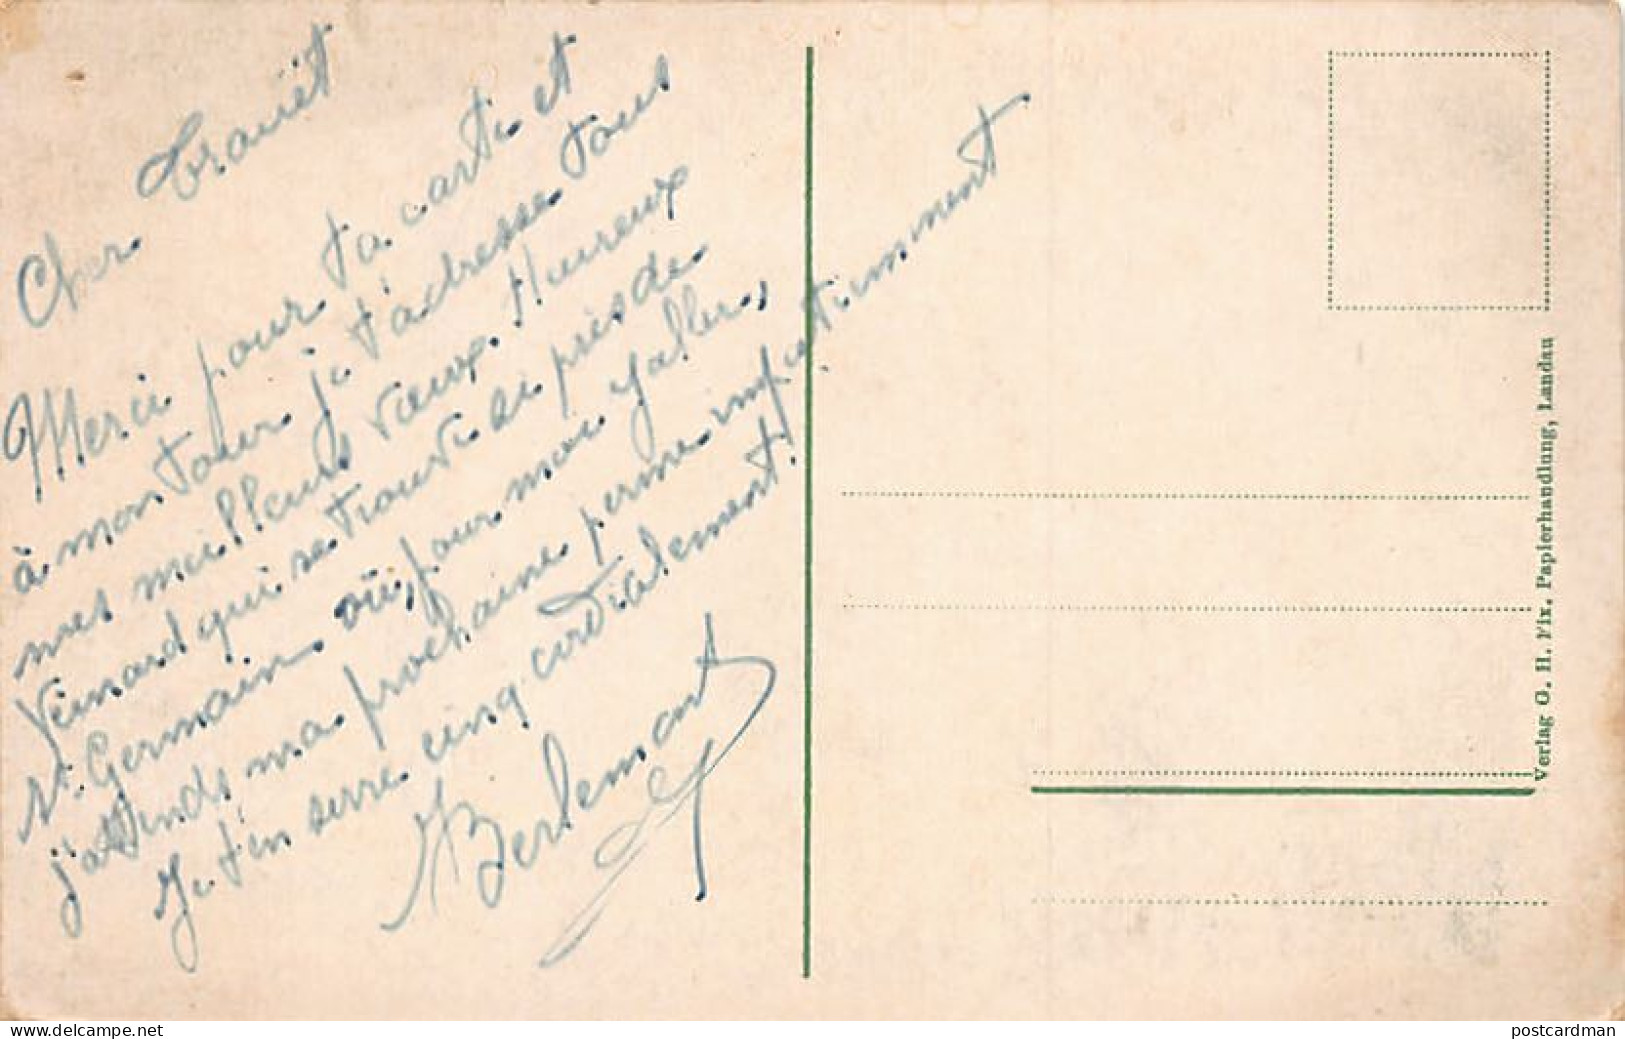 Cher Trouïet
Merci pour ta carte et
à mon tour je t'adresse tous
mes meilleurs vœux. Heureux
Veinard qui se trouve si près de
St. Germain où, pour moi y aller,
j'attends ma prochaine perme impatiemment
Je t'en serre cinq cordialement.
Berlemont
Verlag O. H. Fix, Papierhandlung, Landau
www.delcampe.net
postcardman